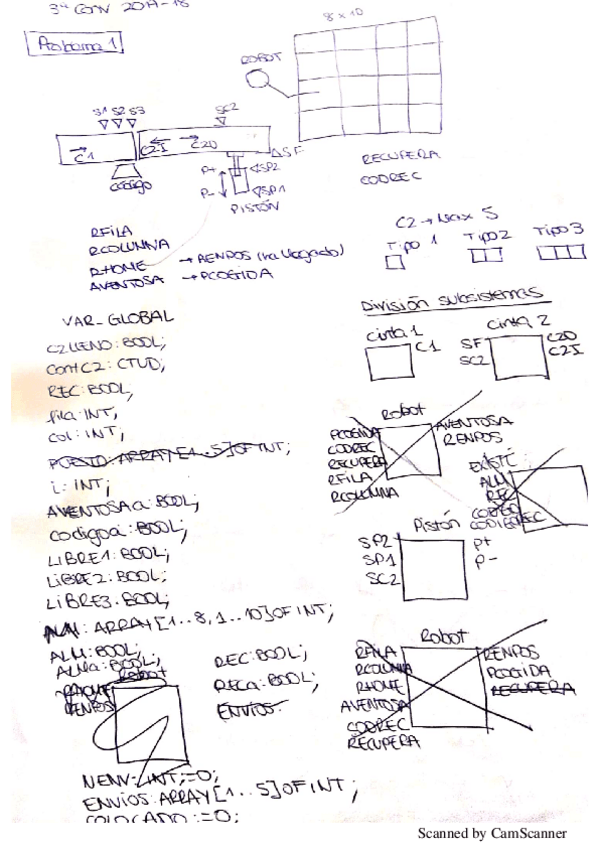 3ª CONV 2017-18
Problema 1
8 x 10
ROBOT
S1 S2 S3
SC2
C1
C2I
C2D
SF
código
P+
P-
SP2
SP1
PISTÓN
RECUPERA
CODREC
RFILA
RCOLUMNA
RHOME → RENPOS (ha llegado)
AVENTOSA → PCOGIDA
C2 → Max 5
Tipo 1
Tipo 2
Tipo 3
División subsistemas
VAR_GLOBAL
C2LLENO: BOOL;
contC2: CTUD;
REC: BOOL;
fila: INT;
col: INT;
PUESTO: ARRAY[1..5] OF INT;
i: INT;
AVENTOSAa: BOOL;
codigoa: BOOL;
LIBRE1: BOOL;
LIBRE2: BOOL;
LIBRE3: BOOL;
ALM: ARRAY[1..8, 1..10] OF INT;
ALM: BOOL;
ALMa: BOOL;
REC: BOOL;
RECa: BOOL;
ENVIOS
RHOME
RENPOS
Robot
NENV: INT;=0;
ENVIOS: ARRAY[1..5] OF INT;
COLOCADO:=0;
cinta 1
C1
cinta 2
SF
SC2
C2D
C2I
Robot
PCOGIDA
CODREC
RECUPERA
RFILA
RCOLUMNA
AVENTOSA
RENPOS
EXISTE
ALM
REC
Pistón
SP2
SP1
SC2
P+
P-
Robot
RFILA
RCOLUMNA
RHOME
AVENTOSA
CODREC
RECUPERA
RENPOS
PCOGIDA
RECUPERA
Scanned by CamScanner